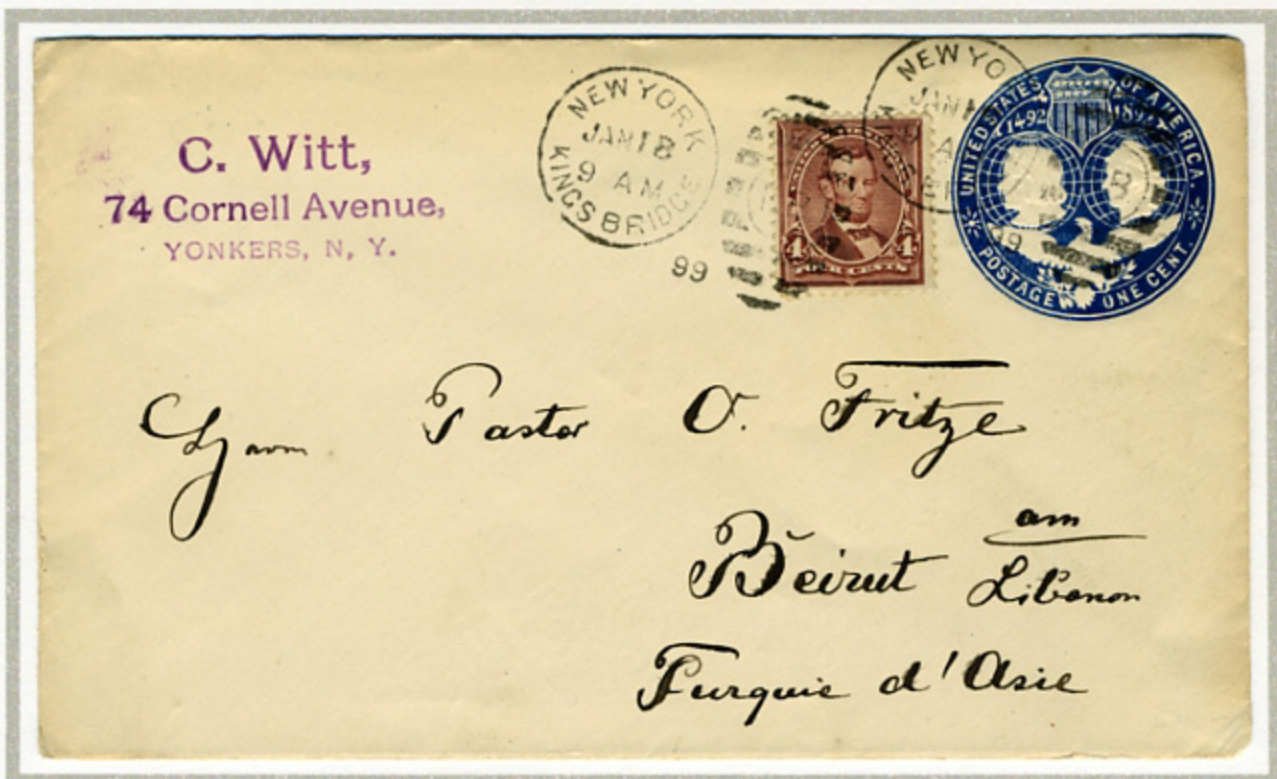 C. Witt,
74 Cornell Avenue,
YONKERS, N, Y.
NEW YORK
JAN 18
9 AM
KINGSBRIDGE
99
4 4
FOUR CENTS
NEW YO
JAN
99
UNITED STATES OF AMERICA.
1492 189
POSTAGE ONE CENT.
Herrn Pastor O. Fritze
Beirut am
Libanon
Turquie d'Asie